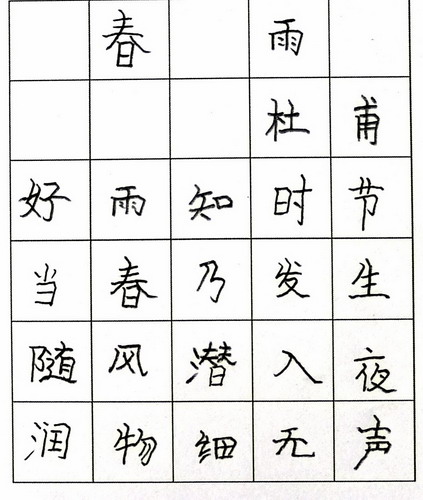 春雨
杜甫
好雨知时节
当春乃发生
随风潜入夜
润物细无声